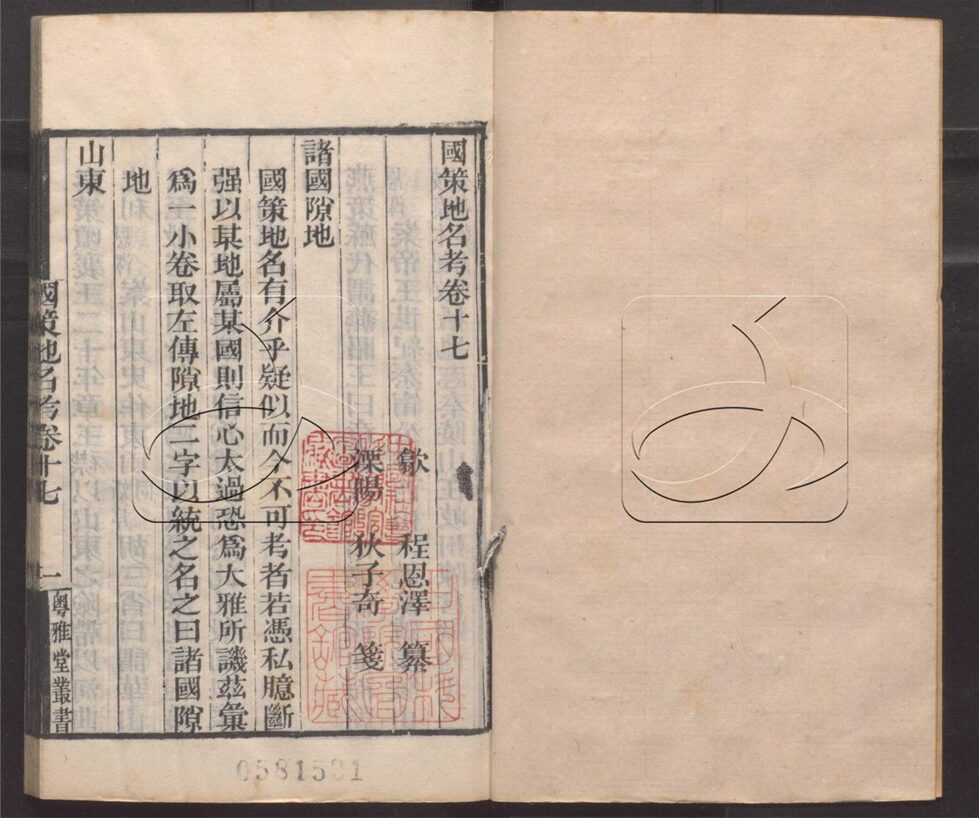 國策地名考卷十七
歙 程恩澤 纂
溧陽 狄子奇 箋
諸國隙地
國策地名有介乎疑似而今不可考者若憑私臆斷
强以某地屬某國則信心太過恐爲大雅所譏茲彙
爲一小卷取左傳隙地二字以統之名之曰諸國隙
地
山東
國策地名考卷十七
一
粵雅堂叢書
0581531